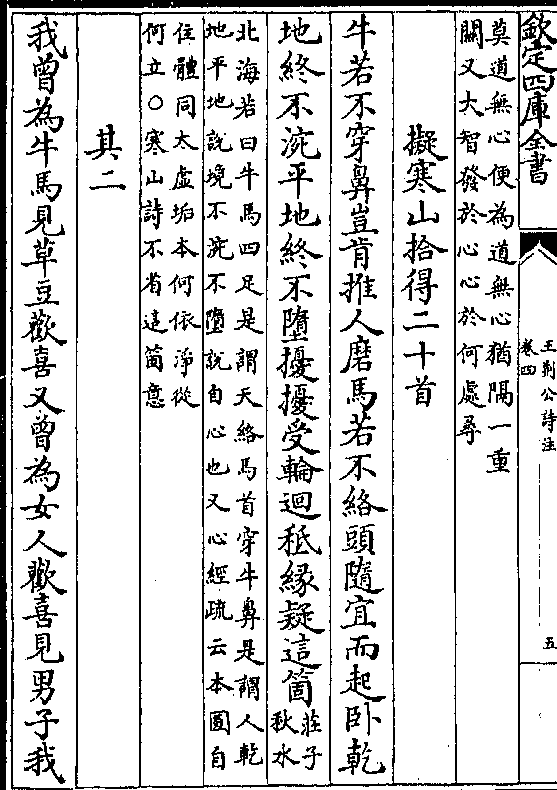 欽定四庫全書
王荊公詩注
卷四
五
莫道無心便為道無心猶隔一重
關又大智發於心心於何處尋
擬寒山拾得二十首
牛若不穿鼻豈肯推人磨馬若不絡頭隨宜而起卧乾
地終不涴平地終不墮擾擾受輪迴秪緣疑這箇莊子
秋水
北海若曰牛馬四足是謂天絡馬首穿牛鼻是謂人乾
地平地説境不涴不墮説自心也又心經疏云本圓自
住體同太虛垢本何依淨從
何立○寒山詩不省這箇意
其二
我曾為牛馬見草豆歡喜又曾為女人歡喜見男子我